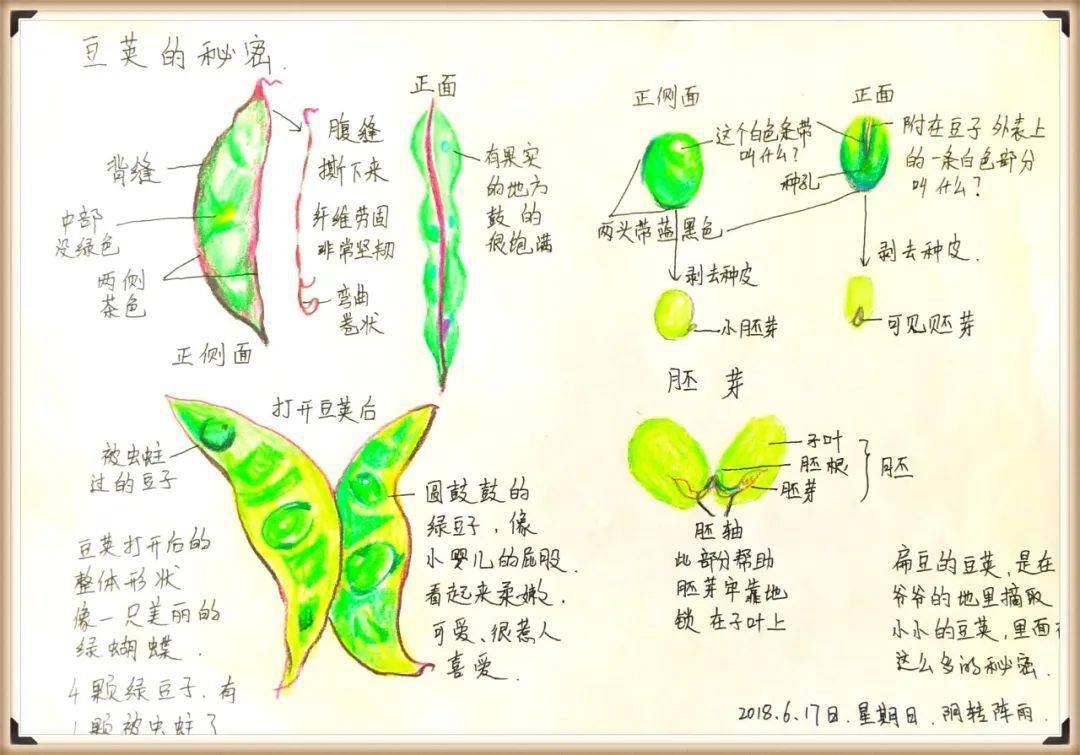 豆荚的秘密.
背缝
中部
没绿色
两侧
茶色
正侧面
腹缝
撕下来
纤维劳固
非常坚韧
弯曲
卷状
正面
有果实
的地方
鼓的
很饱满
正侧面
正面
这个白色条带
叫什么？
种孔
附在豆子外表上
的一条白色部分
叫什么？
两头带蓝黑色
剥去种皮
剥去种皮.
小胚芽
可见胚芽
打开豆荚后
被虫蛀
过的豆子
豆荚打开后的
整体形状
像一只美丽的
绿蝴蝶.
4颗绿豆子.有
1颗被虫蛀了
圆鼓鼓的
绿豆子.像
小婴儿的屁股.
看起来柔嫩.
可爱、很惹人
喜爱.
胚芽
子叶
胚根
胚芽
胚
胚轴
此部分帮助
胚芽牢靠地
锁在子叶上
扁豆的豆荚,是在
爷爷的地里摘取
小小的豆荚,里面有
这么多的秘密.
2018.6.17日.星期日.阴转阵雨.